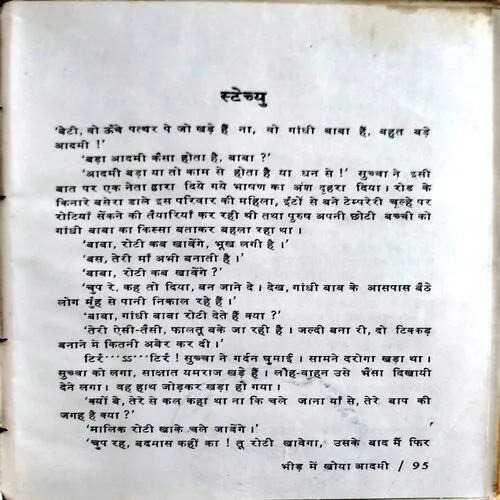 स्टेच्यु
'बेटी, वो ऊँचे पत्थर पे जो खड़े हैं ना, वो गांधी बाबा हैं, बहुत बड़े
आदमी !'
'बड़ा आदमी कैसा होता है, बाबा ?'
'आदमी बड़ा या तो काम से होता है या धन से !' सुच्चा ने इसी
बात पर एक नेता द्वारा दिये गये भाषण का अंश दुहरा दिया। रोड के
किनारे बसेरा डाले इस परिवार की महिला, ईंटों से बने टेम्परेरी चूल्हे पर
रोटियाँ सेंकने की तैयारियाँ कर रही थी तथा पुरुष अपनी छोटी बच्ची को
गांधी बाबा का किस्सा बताकर बहला रहा था।
'बाबा, रोटी कब खावेंगे, भूख लगी है।'
'बस, तेरी माँ अभी बनाती है।'
'बाबा, रोटी कब खवेंगे ?'
'चुप रे, कह तो दिया, बन जाने दे। देख, गांधी बाब के आसपास बैठे
लोग मुँह से पानी निकाल रहे हैं।'
'बाबा, गांधी बाबा रोटी देते हैं क्या ?'
'तेरी ऐसी-तैसी, फालतू बके जा रही है। जल्दी बना री, दो टिक्कड़
बनाने में कितनी अबेर कर दी।'
टिर्र···ऽऽ···टिर्र ! सुच्चा ने गर्दन घुमाई। सामने दरोगा खड़ा था।
सुच्चा को लगा, साक्षात यमराज खड़े हैं। लौह-वाहन उसे भैंसा दिखायी
देने लगा। वह हाथ जोड़कर खड़ा हो गया।
'क्यों बे, तेरे से कल कहा था ना कि चले जाना याँ से, तेरे बाप की
जगह है क्या ?'
'मालिक रोटी खाके चले जावेंगे।'
'चुप रह, बदमास कहीं का ! तू रोटी खावेगा, उसके बाद मैं फिर
भीड़ में खोया आदमी / 95